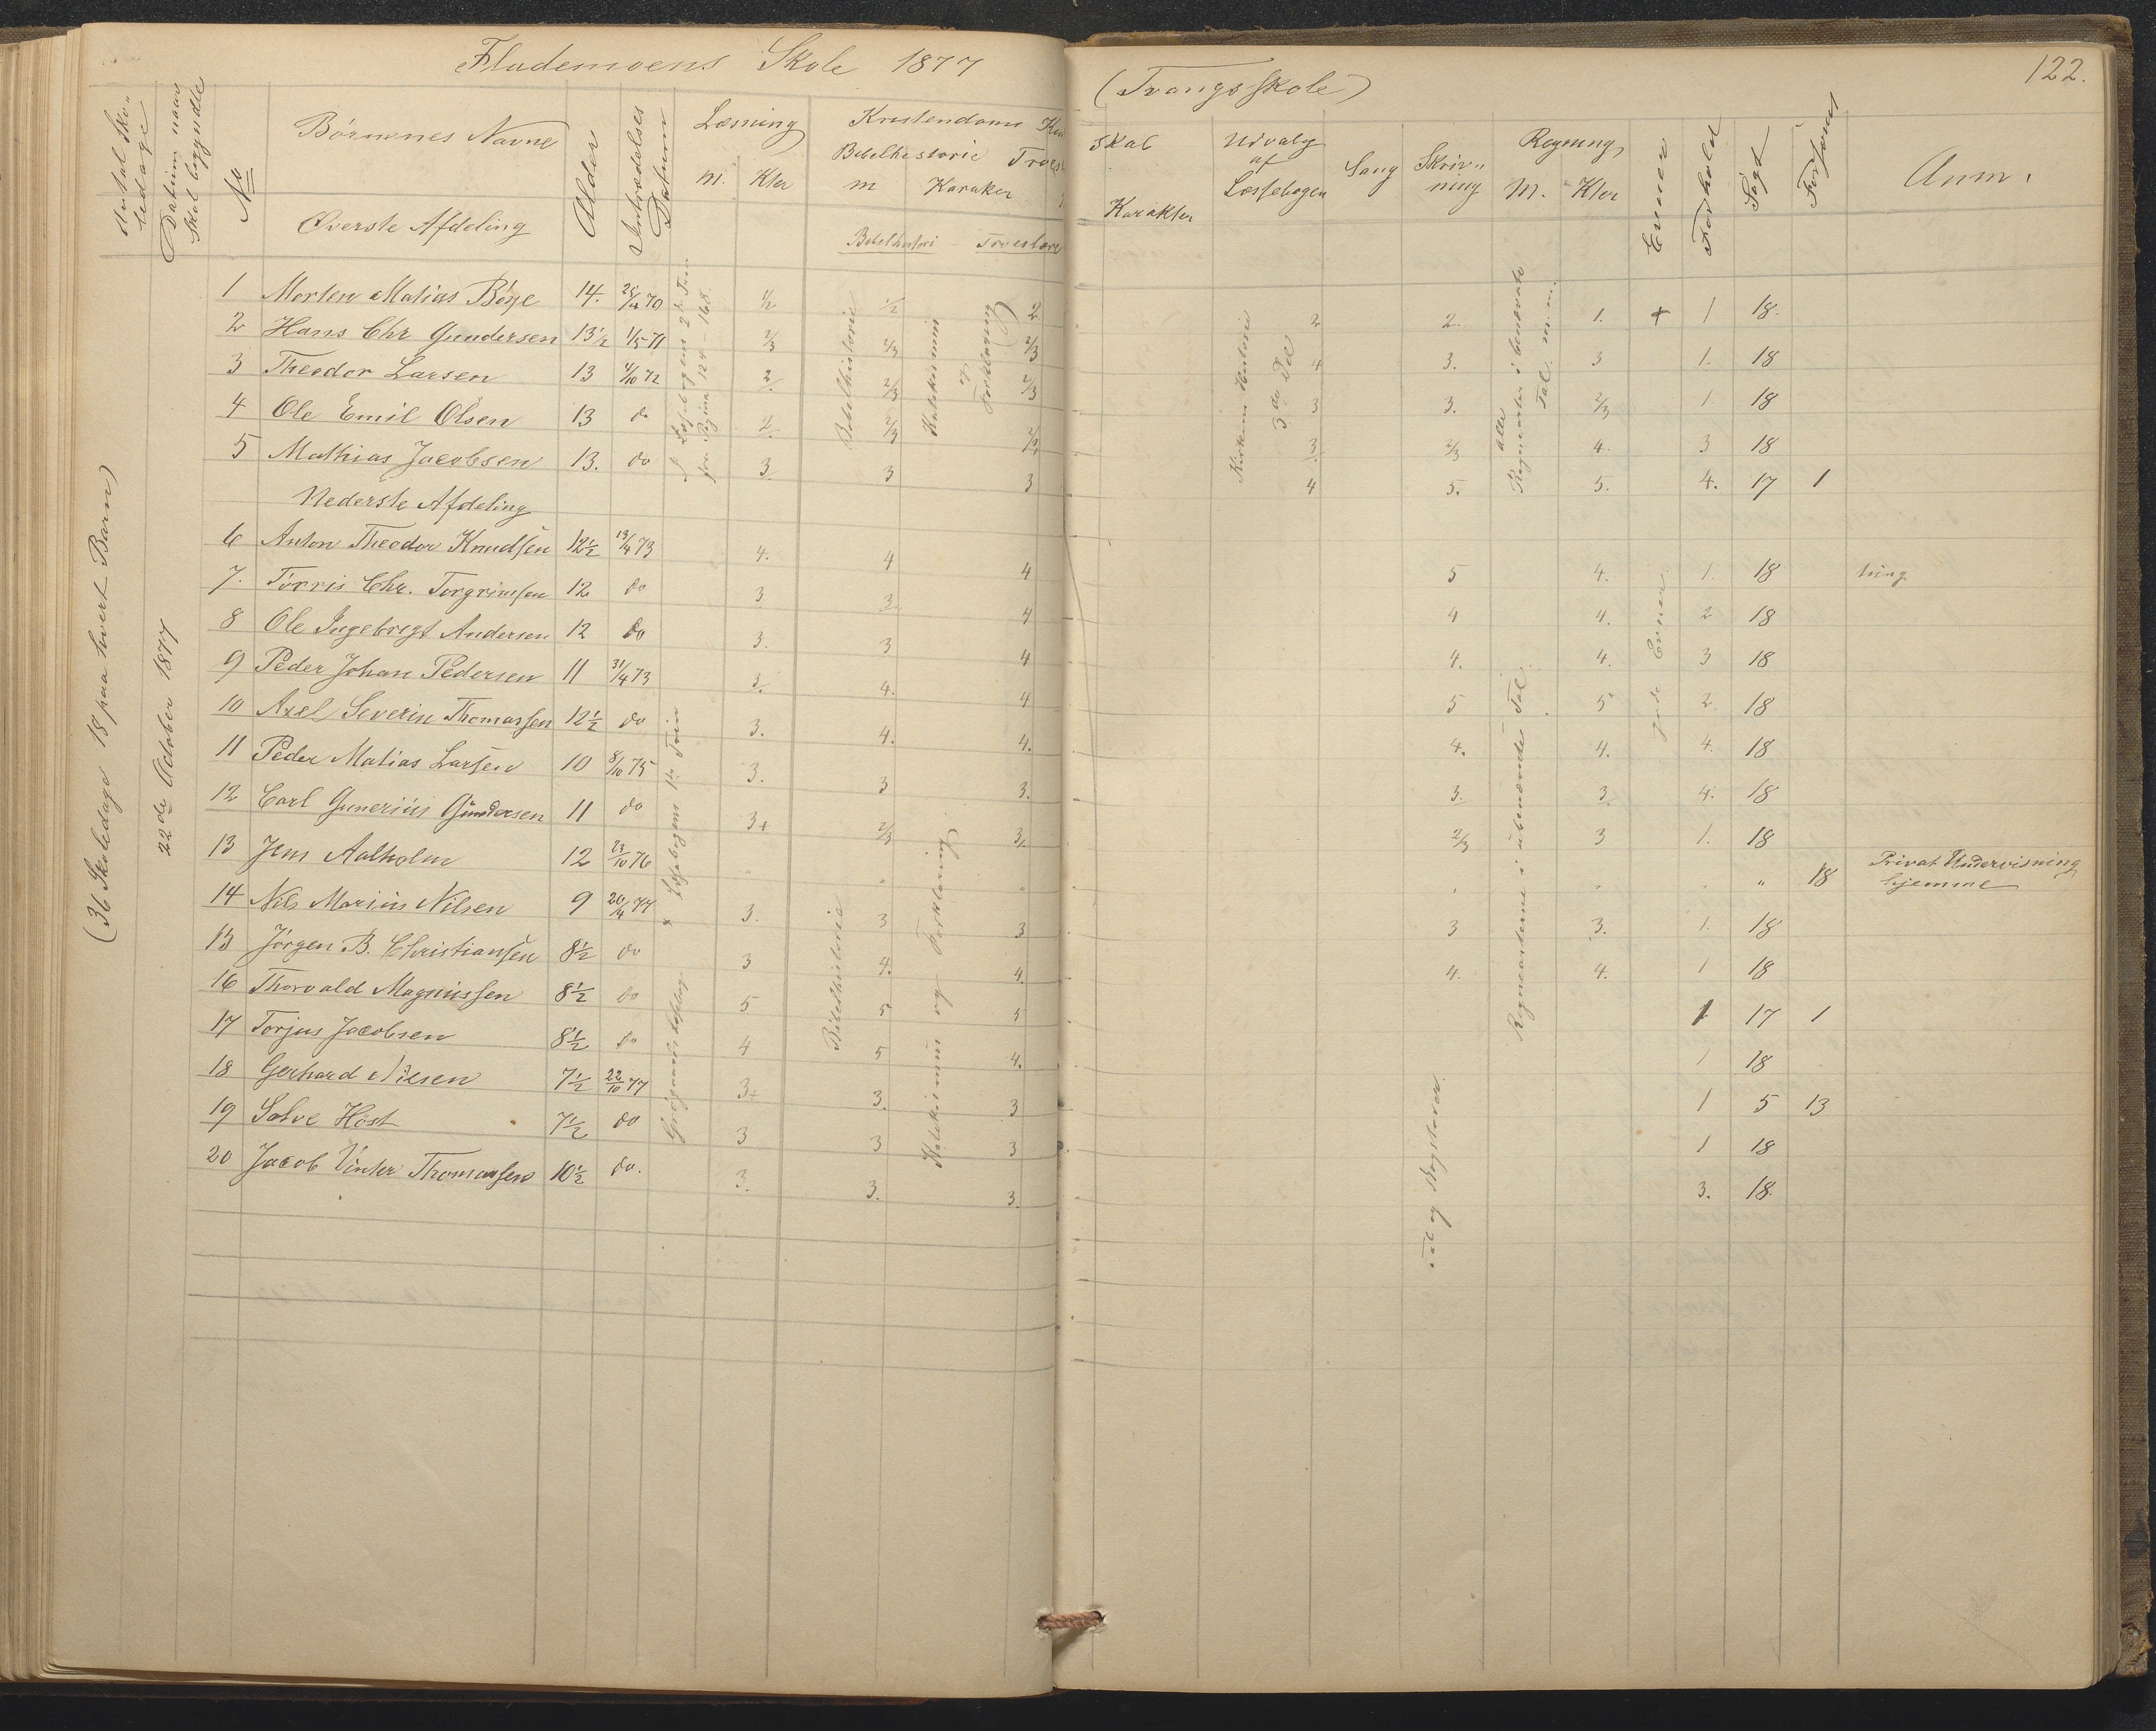 Fladennoens Skole 1877
(Tvangsskole)
122.
Antal Sko„
ledage
Datum naar
Skol. begyndte
No
Børnenes Navne
Øverste Afdeling
Alder
Indtrædelses
Datum
Læsning
M. Kter
Kristendoms Kund
skab
Bibelhistorie
m Karakter
Troes
Karakter
Bibelhistori Troeslære
Udvalg
af
Læsebogen
Sang
Skriv„
ning
Regning
M. Kter
Evner
Forhold
Søgt
Forsømt
Anm.
(36 Skoledage 18 paa hvert Barn)
22de October 1877
Læsebogens 2det Trin
fra Pagina 124-168.
Bibelhistorie
Katekismus
og
Forklaring
Kirkens Historie
3de Del
alle
Regnearter i benævnte
Tal m.m.
1 Morten Matias Böye 14. 70 1/2 1/2 2 2 2. 1. + 1 18.
2 Hans Chr Gundersen 13½ 1/5 71 2/3 2/3 2/3 4 3. 3 1. 18
3 Theodor Larsen 13 72 2. 2/3 2/3 3 3. 2/3 1 18
4 Ole Emil Olsen 13 do 2. 2/3 3 2/3 4. 3 18
5 Mathias Jacobsen 13. do 3. 3 3 4 5. 5. 4. 17 1
Nederste Afdeling
6 Anton Theodor Knudsen 12½ 13/4 73 4. 4 4 5 4. 1. 18
7. Törris Chr. Torgrimsen 12 do 3 3. 4 4 4. 2 18
8 Ole Ingebregt Andersen 12 do 3. 3 4 4. 4. 3 18
9 Peder Johan Pedersen 11 31/4 73 3. 4. 4 5 5 2. 18
10 Axel Severin Thomassen 12½ do 3. 4. 4. 4. 4. 4. 18
11 Peder Matias Larsen 10 8/10 75 3. 3 3. 3. 3. 4. 18
12 Carl Gunerius Gundersen 11 do 3+ 2/3 2/3 3 1. 18
13 Jens Aalholm 12 23/10 76 „ „ „ „ 18 Privat Undervisning
hjemme
14 Nils Marius Nilsen 9 20/4 77 3. 3 3 3 3. 1. 18
15 Jörgen B. Christiansen 8½ do 3 4. 4. 4. 4. 1 18
16 Thorvald Magnussen 8½ do 5 5 5 1 17 1
17 Torjus Jacobsen 8½ do 4 5 4. 1 18
18 Gerhard Nilsen 7½ 22/10 77 3. 3 1 5 13
19 Salve Höst 7½ do 3 3 3 1 18
20 Jacob Vinter Thomassen 10½ do. 3. 3. 3. 3. 18.
x Læsebogens 1ste Trin
Bibelhistorie
Katekismus og Forklaring
Regnearterne i ubenævnte Tal
gode Evner
Tal og Bogstaver